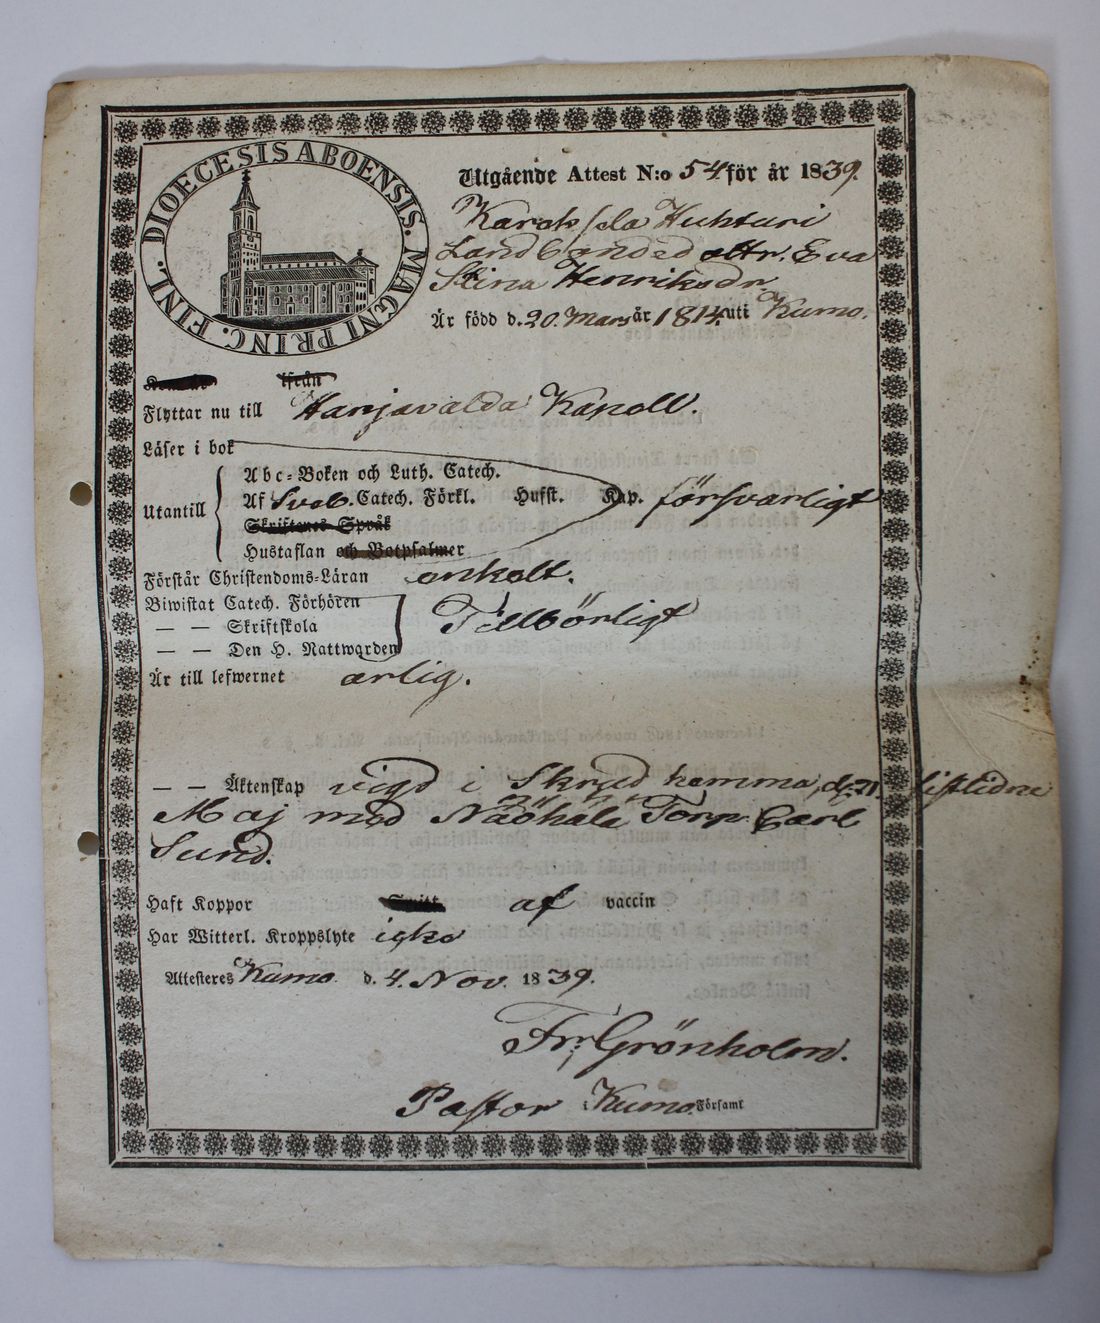 DIOECESIS ABOENSIS. MAGNI PRINC. FINL.
Utgående Attest N:o 54 för år 1839.
Huhturi
Landbonded ottr. Eva
Stina Henriksdr
Är född d. 20. Mars år 1814. uti Kumo.
ifrån
Flyttar nu till Harjavalda Kapell.
Läser i bok
Utantill
Abc-Boken och Luth. Catech.
Af Sveb. Catech. Förkl. Husst. Kap. försvarligt
Skriftenes Språk
Hustaflan och Botpsalmer
Förstår Christendoms-Läran enkelt.
Biwistat Catech. Förhören
— — Skriftskola Tillbörligt
— — Den H. Nattwarden
Är till lefwernet ärlig.
— — Äktenskap vigd i hemma, d. 21 sistlidne
Maj med Torp. Carl
Sund.
Haft Koppor af vaccin
Har Witterl. Kroppslyte icke
Attesteres Kumo. d. 4. Nov. 1839.
Fr. Grönholm.
Pastor i Kumo Församl